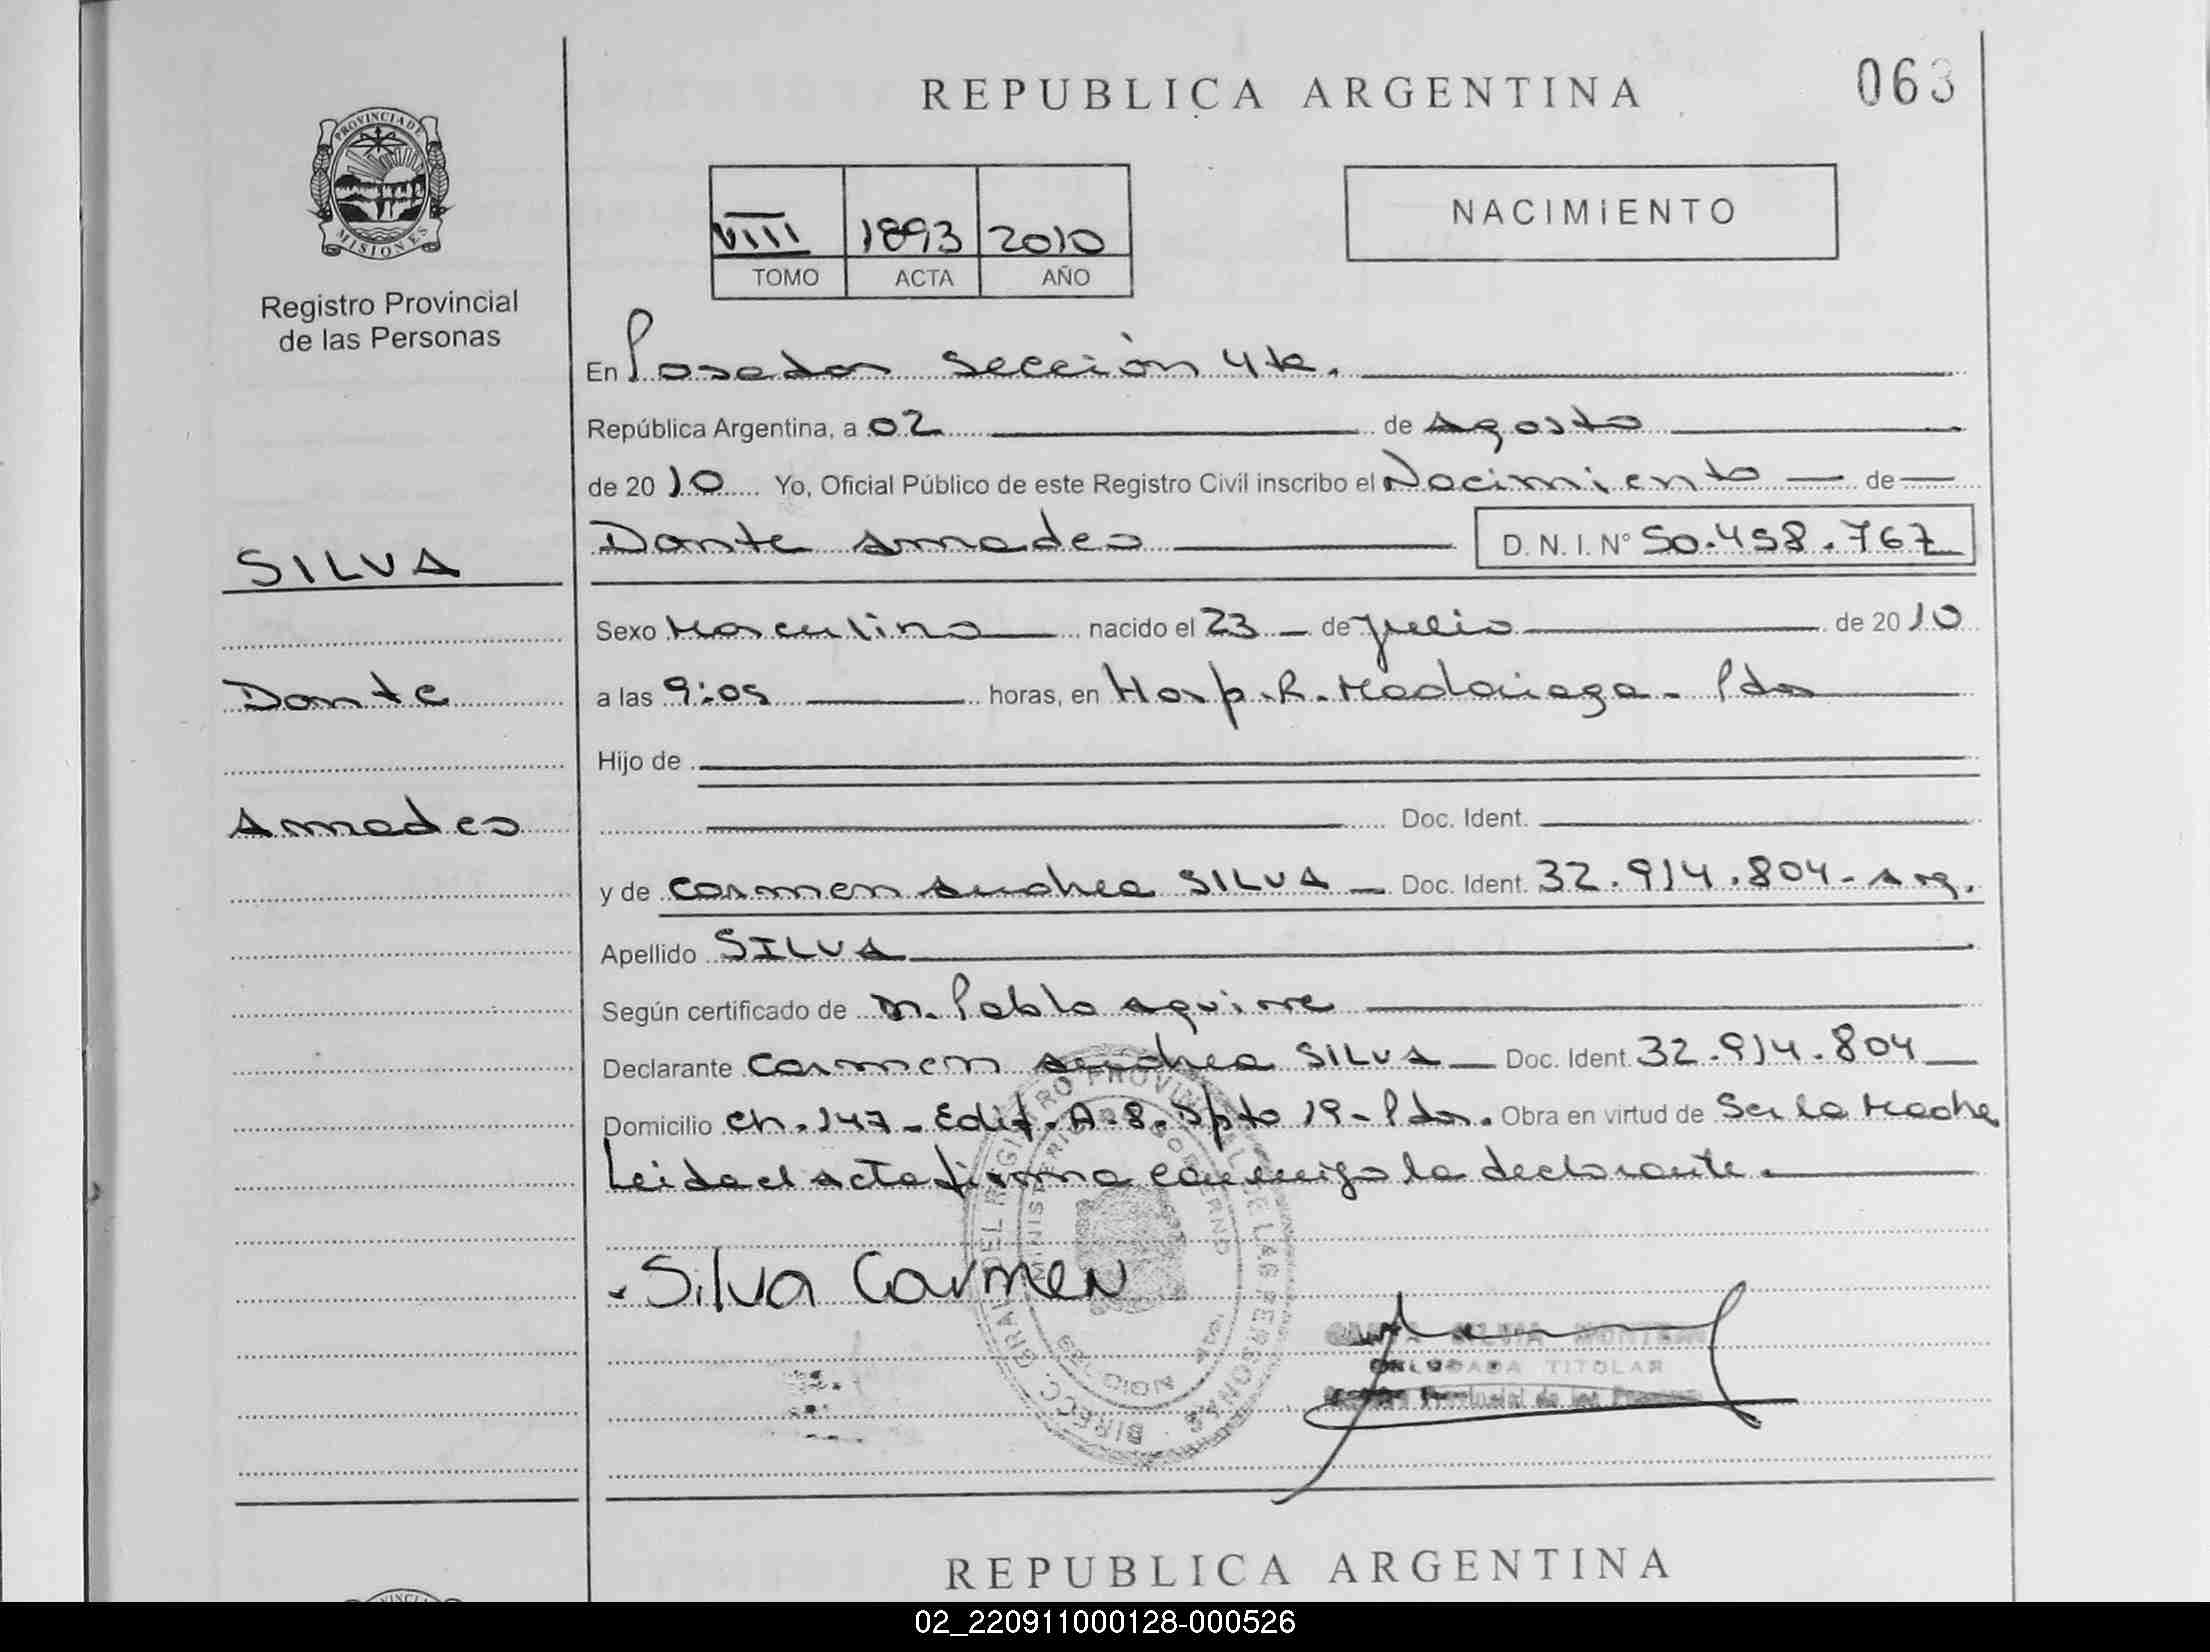 REPUBLICA ARGENTINA
063
PROVINCIA DE MISIONES
Registro Provincial
de las Personas
VIII 1893 2010
TOMO ACTA AÑO
NACIMIENTO
En Posadas Sección 4ta.
República Argentina, a 02 de Agosto
de 2010 Yo, Oficial Público de este Registro Civil inscribo el Nacimiento de
Dante Amadeo D. N. I. N° 50.458.767
SILVA
Dante
Amadeo
Sexo Masculino nacido el 23 de Julio de 2010
a las 9:05 horas, en Hosp. R. Madariaga - Pdas
Hijo de
Doc. Ident.
y de Carmen Andrea SILVA Doc. Ident. 32.914.804 - Arg.
Apellido SILVA
Según certificado de M. Pablo Aguirre
Declarante Carmen Andrea SILVA Doc. Ident. 32.914.804
Domicilio Ch. 147 - Edif. A-8. Dpto 19 - Pdas. Obra en virtud de Ser la Madre
Leida el acta firma conmigo la declarante.
Silva Carmen
TITULAR
Provincial de las Personas
REPUBLICA ARGENTINA
02_220911000128-000526